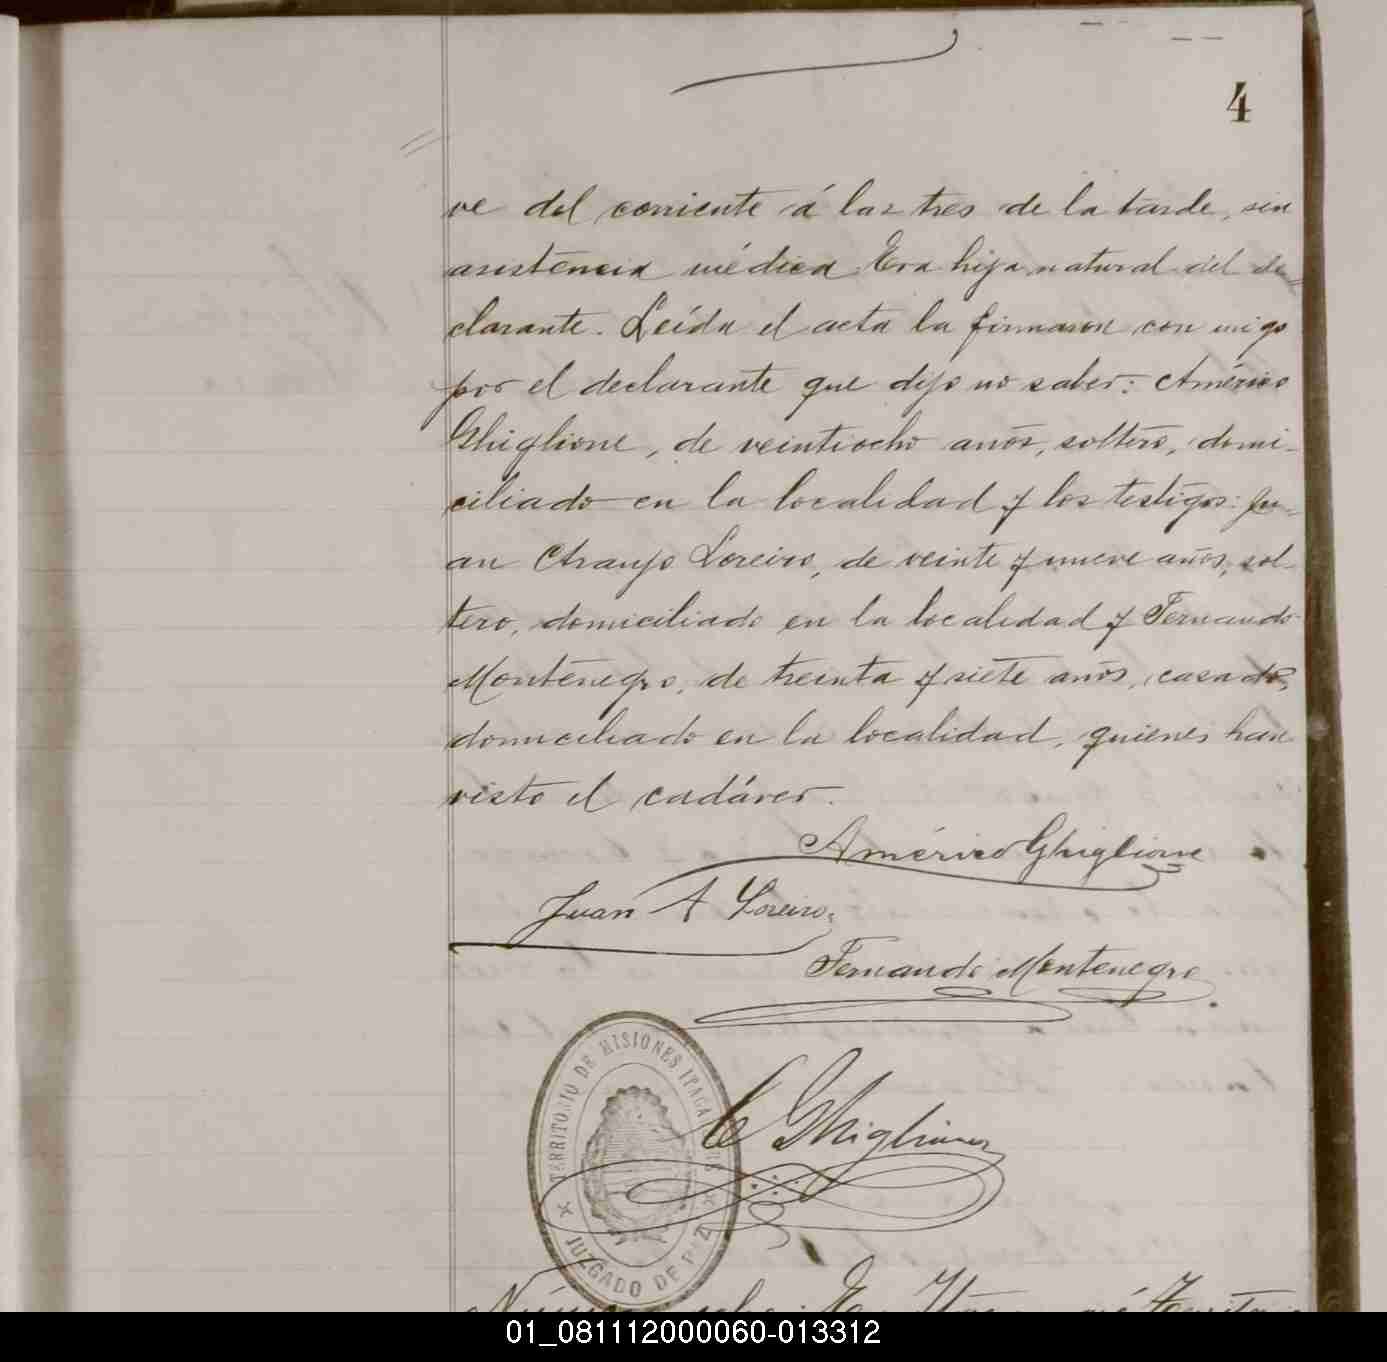 4
ve del corriente á las tres de la tarde, sin
asistencia médica Era hija natural del de=
clarante. Leída el acta la firmaron con migo
por el declarante que dijo no saber: Américo
Ghiglione, de veintiocho años, soltero, domi-
ciliado en la localidad y los testigos: Ju-
an Araujo Loreiro, de veinte y nueve años, sol-
tero, domiciliado en la localidad y Fernando
Montenegro, de treinta y siete años, casado,
domiciliado en la localidad, quienes han
visto el cadáver.
Américo Ghiglione
Juan A Loreiro
Fernando Montenegro
TERRITORIO DE MISIONES
JUZGADO DE PAZ
Ghiglione
01_081112000060-013312